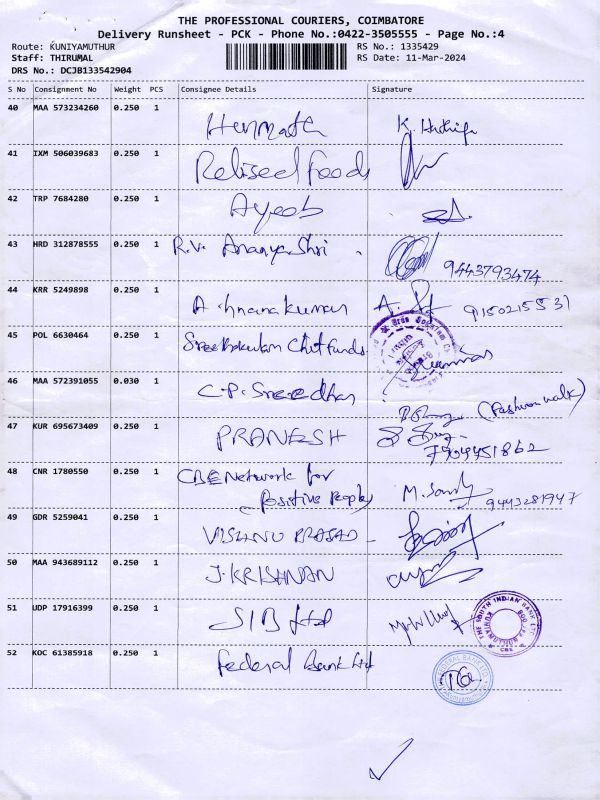 THE PROFESSIONAL COURIERS, COIMBATORE
Delivery Runsheet - PCK - Phone No.:0422-3505555 - Page No.:4
Route: KUNIYAMUTHUR
RS No.: 1335429
Staff: THIRUMAL
RS Date: 11-Mar-2024
DRS No.: DCJB133542904
S No Consignment No Weight PCS Consignee Details Signature
40 MAA 573234260 0.250 1
K.
41 IXM 506039683 0.250 1
Foods
42 TRP 7684280 0.250 1
Ayeob
43 HRD 312878555 0.250 1
R.V. Ananya Shri
9443793474
44 KRR 5249898 0.250 1
A.
45 POL 6630464 0.250 1
Chit funds
46 MAA 572391055 0.030 1
C.P. Sreedhar
(Fashion walk)
47 KUR 695673409 0.250 1
PRANESH
48 CNR 1780550 0.250 1
CBE Network for
Positive People
M.
9443281947
49 GDR 5259041 0.250 1
VISHNU PRASAD
50 MAA 943689112 0.250 1
J. KRISHNAN
51 UDP 17916399 0.250 1
SIB Ltd
THE SOUTH INDIAN BANK LTD
CBE
52 KOC 61385918 0.250 1
Federal Bank Ltd
FEDERAL BANK LTD